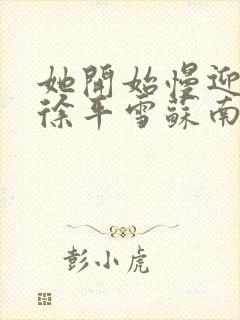 她開始慢迎
徐平雪蘇南
彭小虎